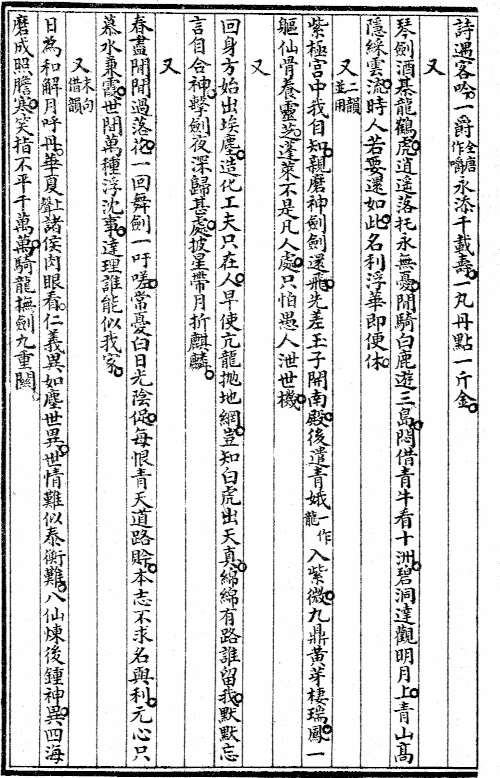 詩遇客吟一爵全唐作嚼永添千載壽一丸丹點一斤金
又
琴劍酒棊龍鶴虎逍遙落托永無憂閒騎白鹿遊三島悶借青牛看十洲碧洞達觀明月上青山高
隱綵雲流時人若要還如此名利浮華即便休
又二韻並用
紫極宮中我自知親磨神劍劍還飛先差玉子開南殿後遣青娥一作龍入紫微九鼎黃芽棲瑞鳳一
軀仙骨養靈芝蓬萊不是凡人處只怕愚人泄世機
又
回身方始出埃塵造化工夫只在人早使亢龍抛地網豈知白虎出天真綿綿有路誰留我默默忘
言自合神擊劍夜深歸甚處披星帶月折麒麟
又
春盡閒閒過落花一回舞劍一吁嗟常憂白日光陰促每恨青天道路賒本志不求名與利元心只
慕水兼霞世間萬種浮沈事達理誰能似我家
又末句借韻
日為和解月呼丹華夏上聲諸侯肉眼看仁義異如塵世異世情難似泰衡難八仙煉後鍾神異四海
磨成照膽寒笑指不平千萬萬騎龍撫劍九重關